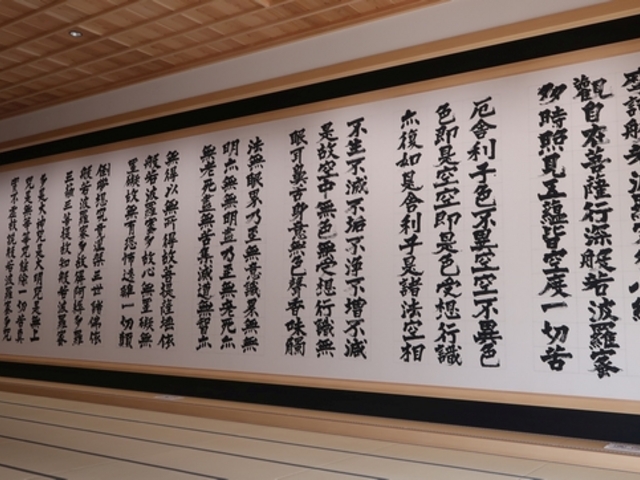 觀自在菩薩行深般若波羅蜜
多時照見五蘊皆空度一切苦
厄舎利子色不異空空不異色
色即是空空即是色受想行識
亦復如是舎利子是諸法空相
不生不滅不垢不浄不増不減
是故空中無色無受想行識無
眼耳鼻舌身意無色聲香味觸
法無眼界乃至無意識界無無
明亦無無明盡乃至無老死亦
無老死盡無苦集滅道無智亦
無得以無所得故菩提薩埵依
般若波羅蜜多故心無罣礙無
罣礙故無有恐怖遠離一切顛
倒夢想究竟涅槃三世諸佛依
般若波羅蜜多故得阿耨多羅
三藐三菩提故知般若波羅蜜
多是大神咒是大明咒是無上
咒是無等等咒能除一切苦真
實不虚故説般若波羅蜜多咒